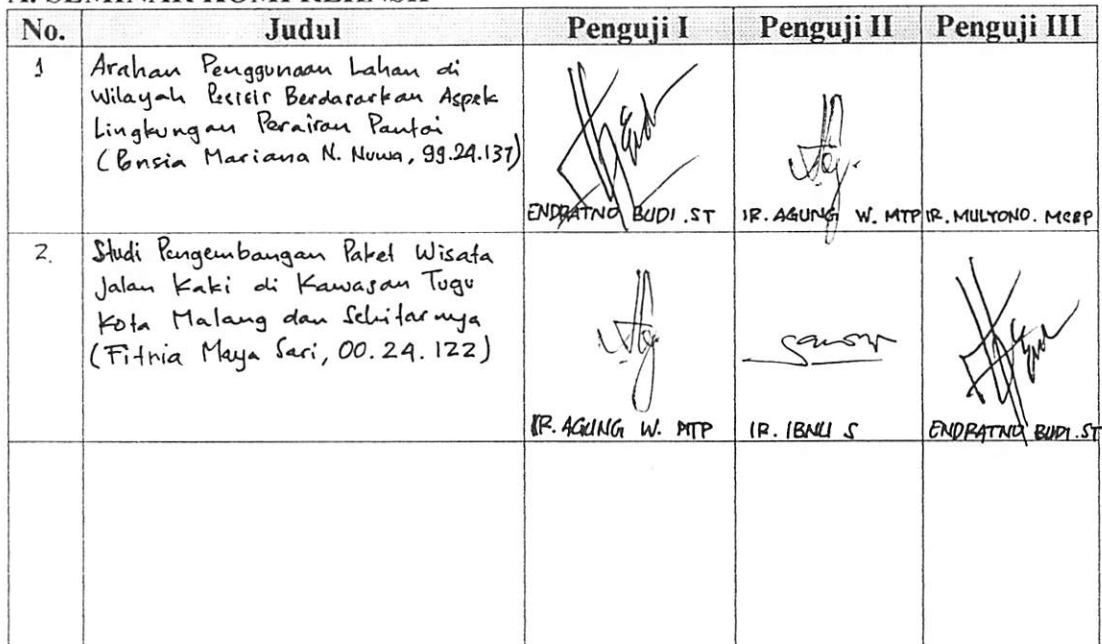 A. SEMINAR KOMPREHNSIF
No. Judul Penguji I Penguji II Penguji III
1 Arahan Penggunaan Lahan di
Wilayah Pesisir Berdasarkan Aspek
Lingkungan Perairan Pantai
(Ponsia Mariana N. Nuwa, 99.24.137)
ENDRATNO BUDI .ST IR. AGUNG W. MTP IR. MULYONO. MCRP
2. Studi Pengembangan Paket Wisata
Jalan Kaki di Kawasan Tugu
Kota Malang dan Sekitarnya
(Fitria Maya Sari, 00.24.122)
IR. AGUNG W. MTP IR. IBNU S ENDRATNO BUDI .ST